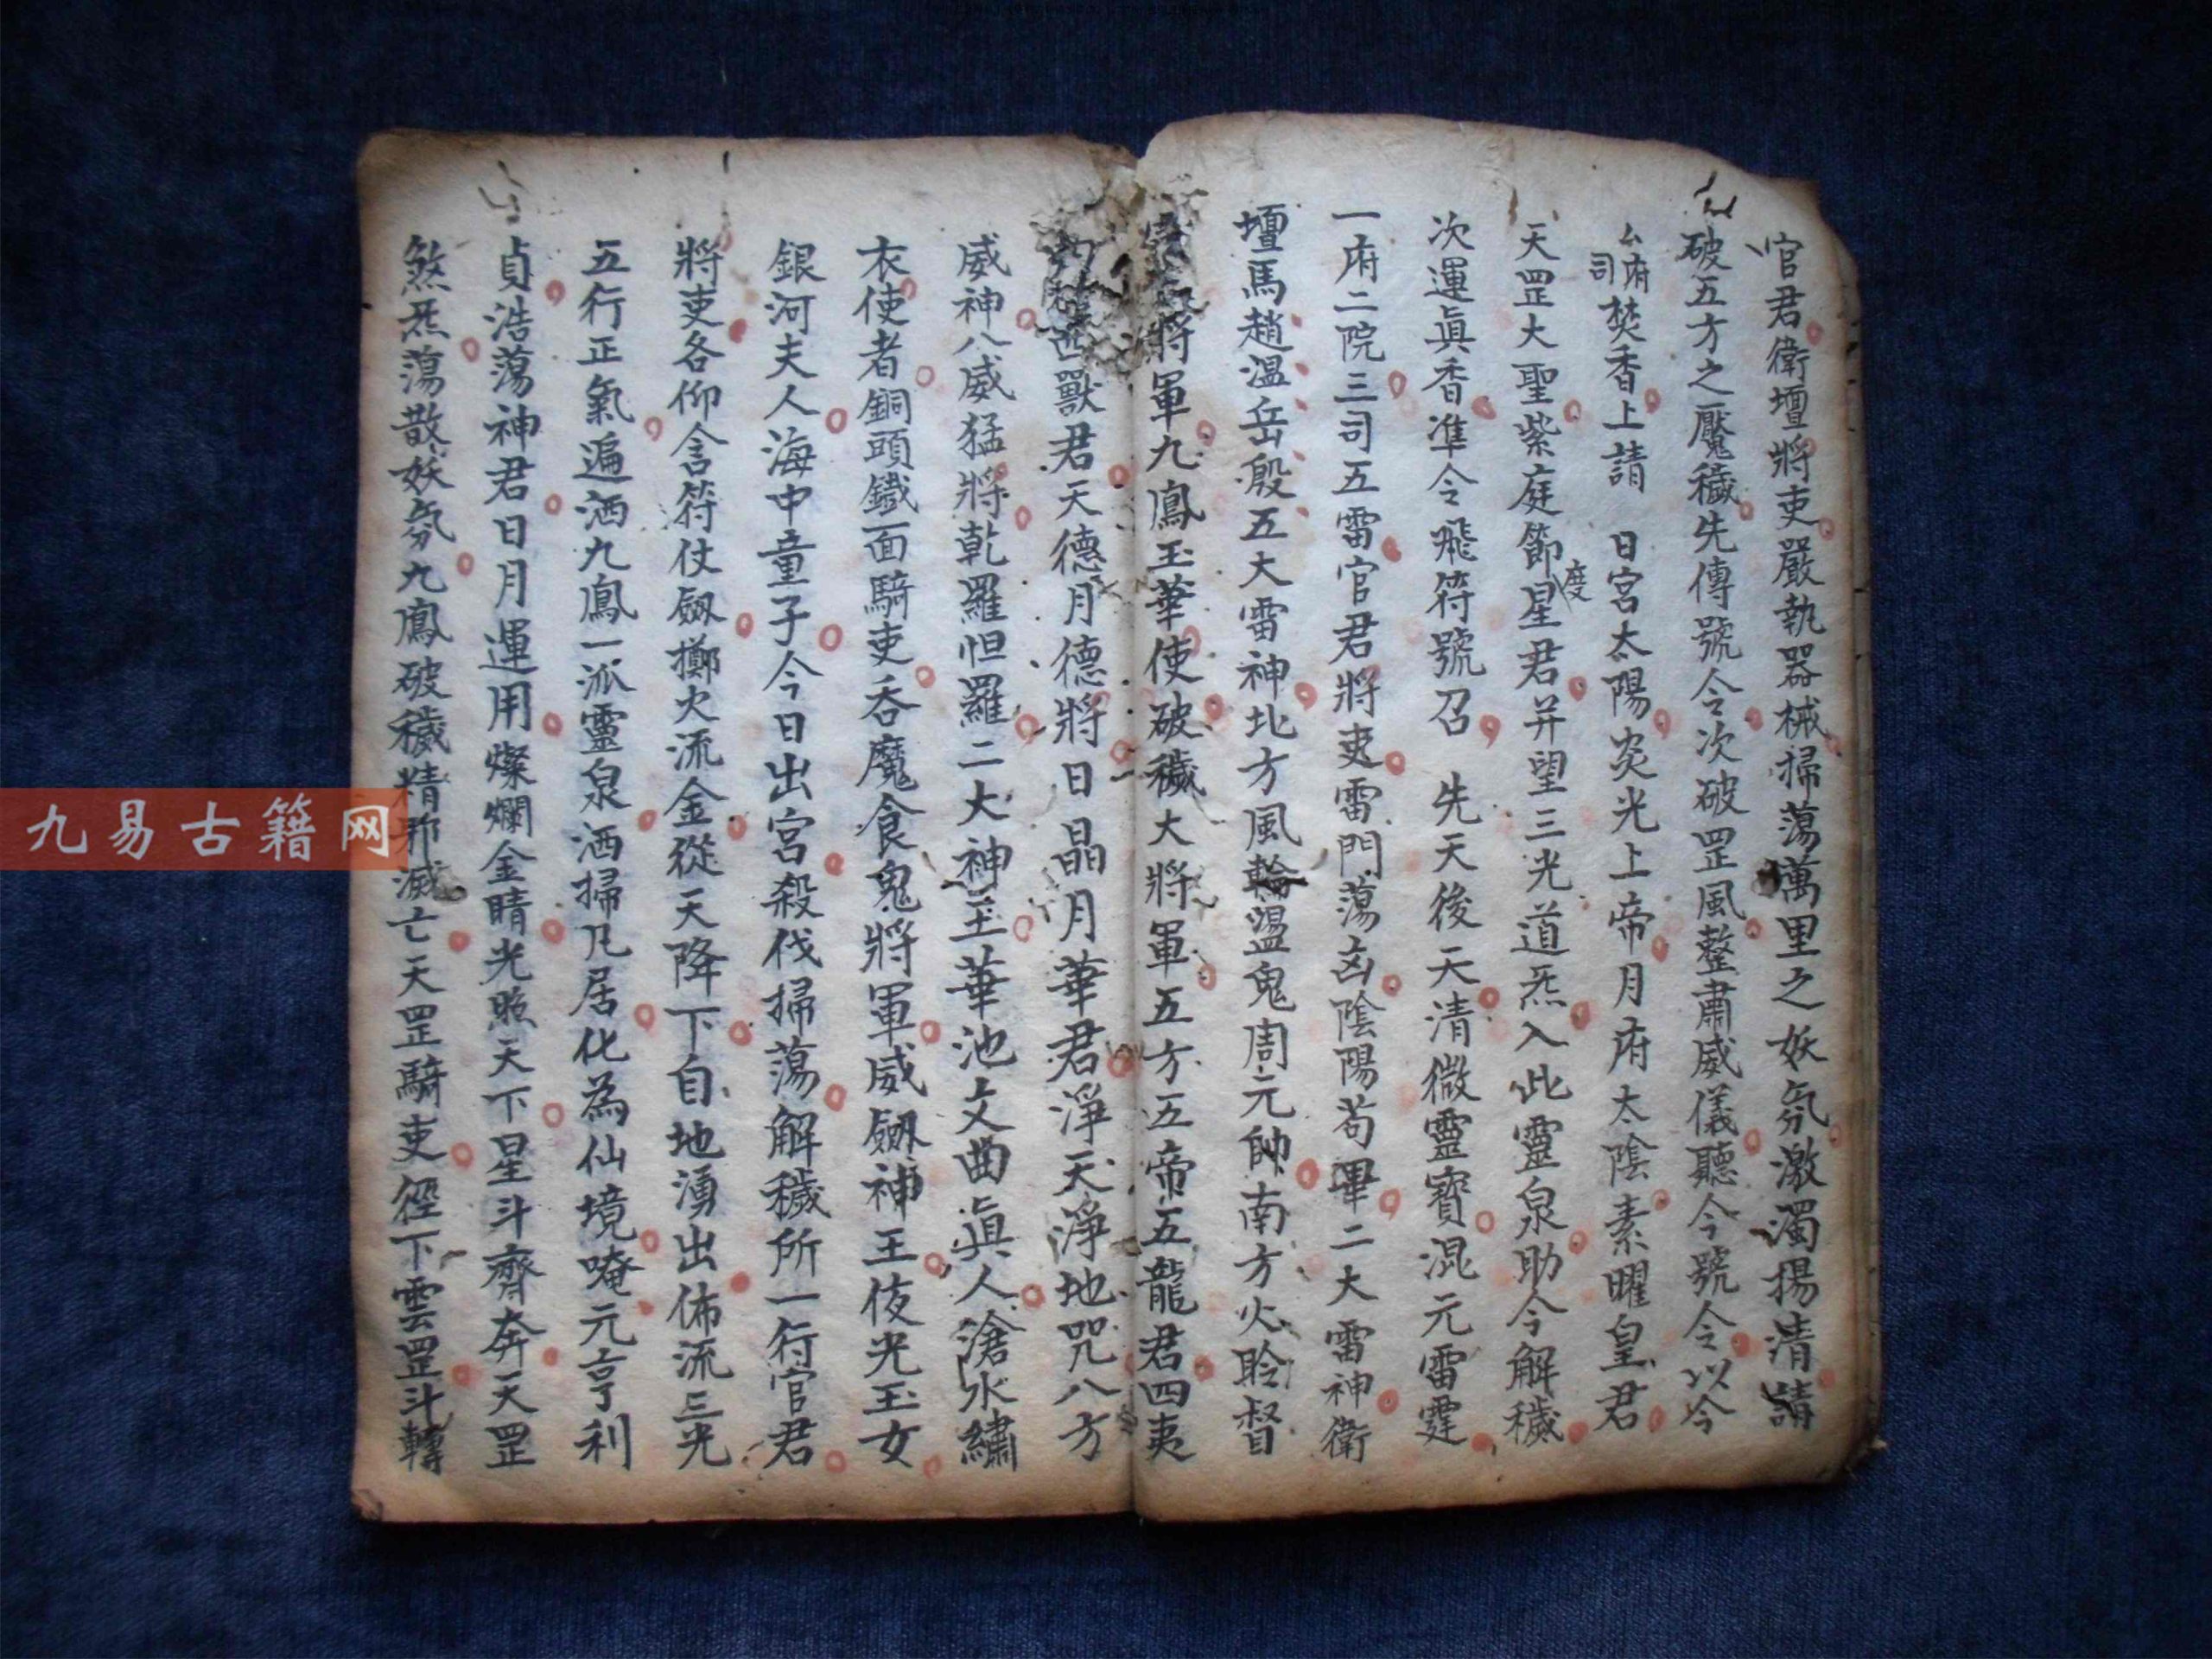 官君衛壇將吏嚴執器械掃蕩萬里之妖氛激濁揚清請
破五方之魘穢先傳號令次破罡風整肅威儀聽今號令以今
府司焚香上請 日宮太陽炎光上帝月府太陰素曜皇君
天罡大聖紫庭節度星君并望三光道炁入此靈泉助今解穢
次運眞香準令飛符號召 先天後天清微靈寶混元雷霆
一府二院三司五雷官君將吏雷門蕩凶陰陽苟畢二大雷神衛
壇馬趙溫岳殷五大雷神北方風輪盪鬼周元帥南方火聆督
將軍九鳳玉華使破穢大將軍五方五帝五龍君四夷
獸君天德月德將日晶月華君淨天淨地咒八方
威神八威猛將乾羅怛羅二大神王華池文曲眞人滄水繡
衣使者銅頭鐵面騎吏吞魔食鬼將軍威劔神王伎光玉女
銀河夫人海中童子今日出宮殺伐掃蕩解穢所一行官君
將吏各仰含符仗劔擲火流金從天降下自地湧出佈流三光
五行正氣遍洒九鳳一派靈泉洒掃凡居化為仙境唵元亨利
貞浩蕩神君日月運用燦爛金睛光照天下星斗齊奔天罡
煞炁蕩散妖氛九鳳破穢精邪滅亡天罡騎吏徑下雲罡斗轉
九易古籍网